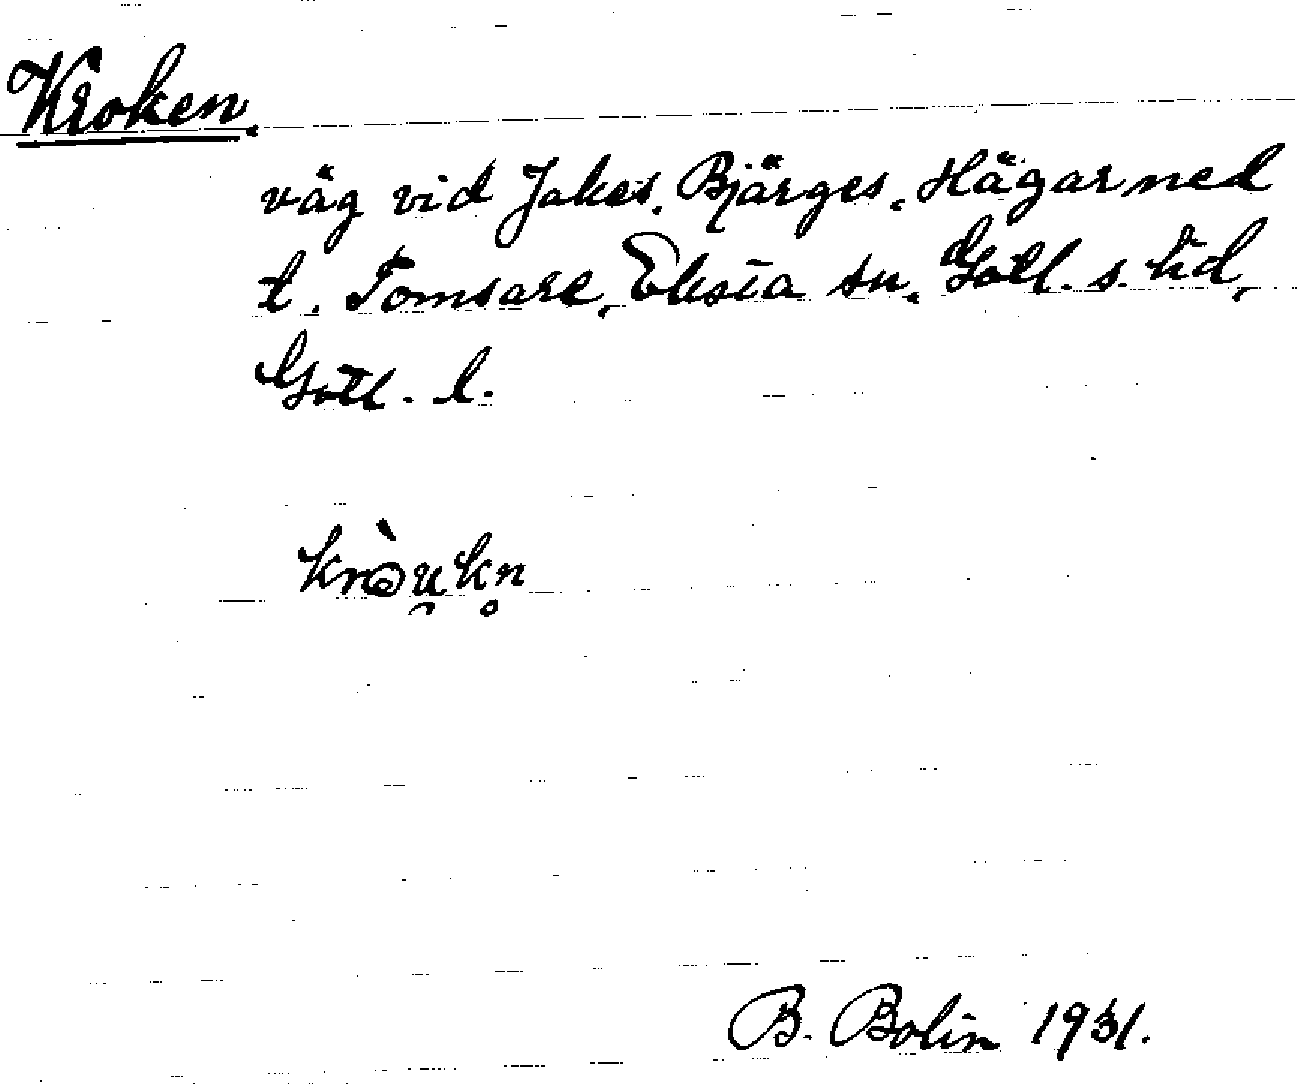 Kroken.
väg vid Jakes, Bjärges, Hägar ned
t. Tomsare, Eksta sn. Gotl. s. hd,
Gotl. l.
kròu̯kn̥
B. Bolin 1931.